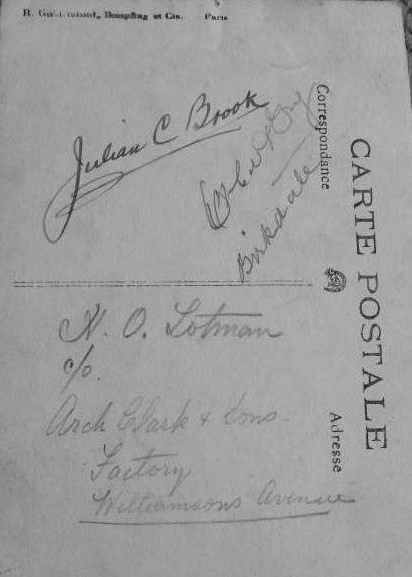 R. Guilleminot, Boespflug et Cie. Paris
Julian C Brook
Birkdale
Correspondance
CARTE POSTALE
Adresse
N. O. Lotman
c/o.
Arch Clark & Sons
Factory
Williamsons Avenue